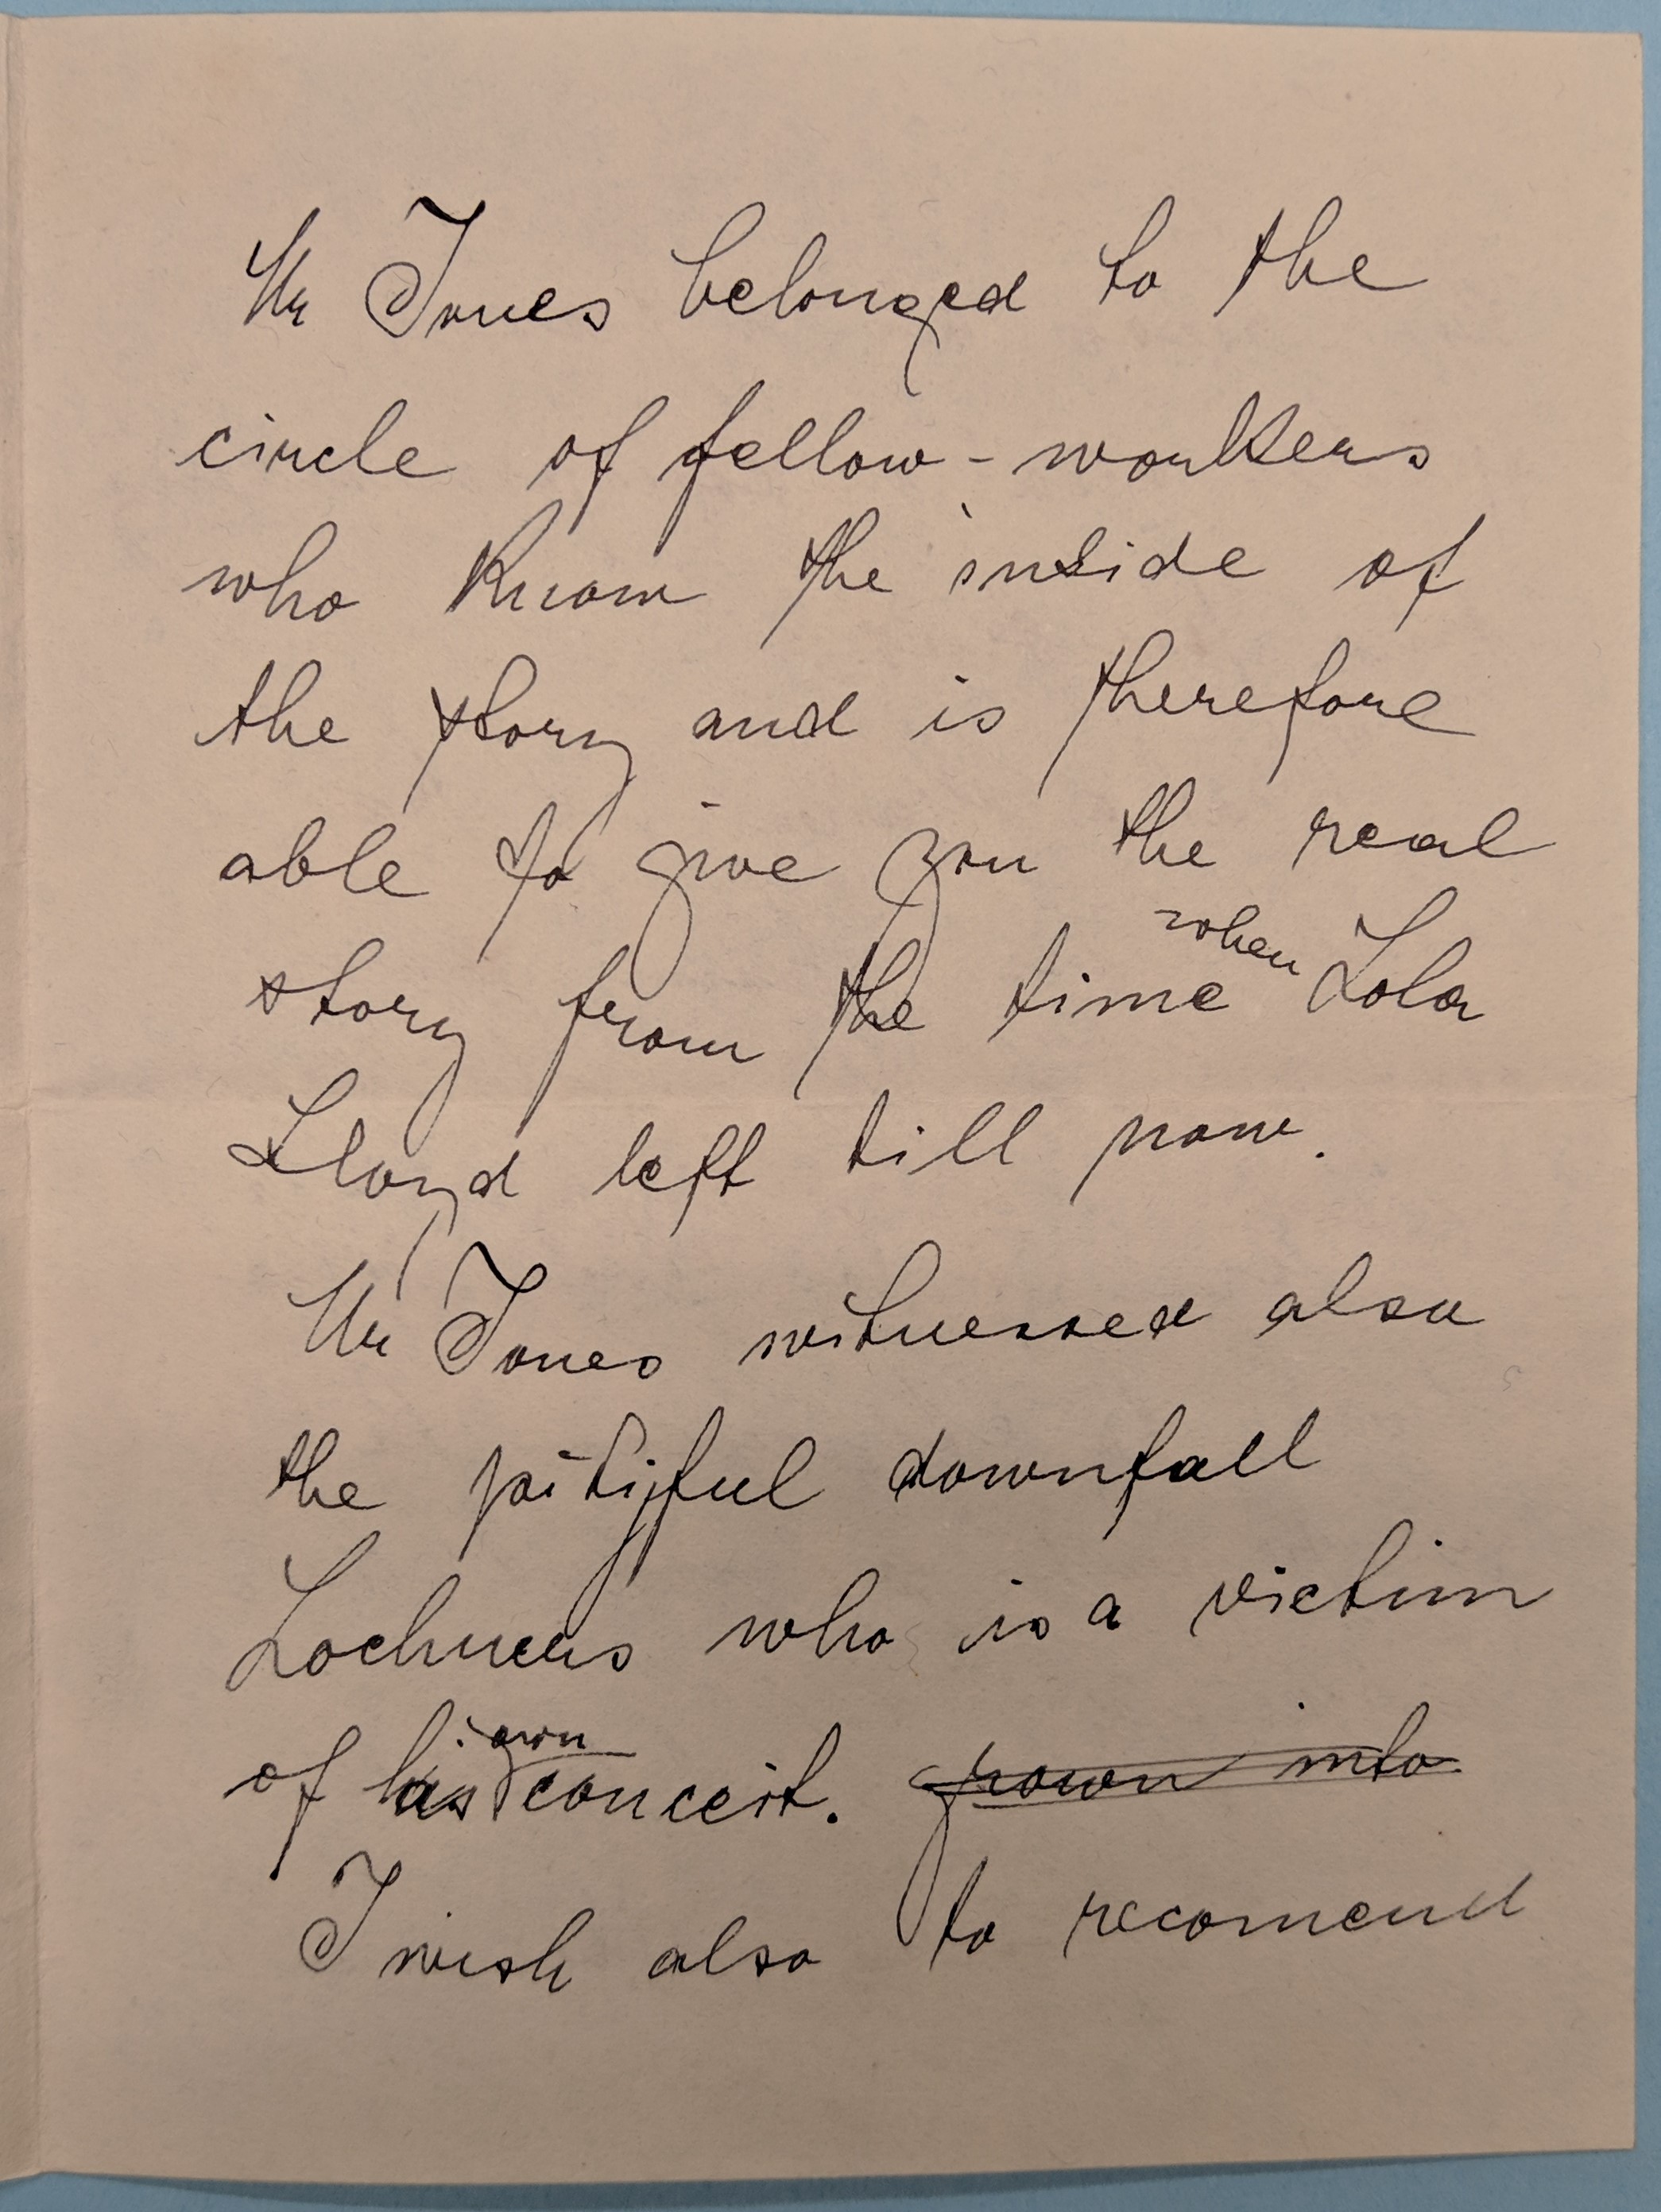 Mr Jones belonged to the
circle of fellow-workers
who know the inside of
the story and is therefore
able to give you the real
story from the time when Lola
Lloyd left till now.
Mr Jones witnessed also
the pitiyful downfall
Lochners who is a victim
of his own conceit. grown into
I wish also to recomend